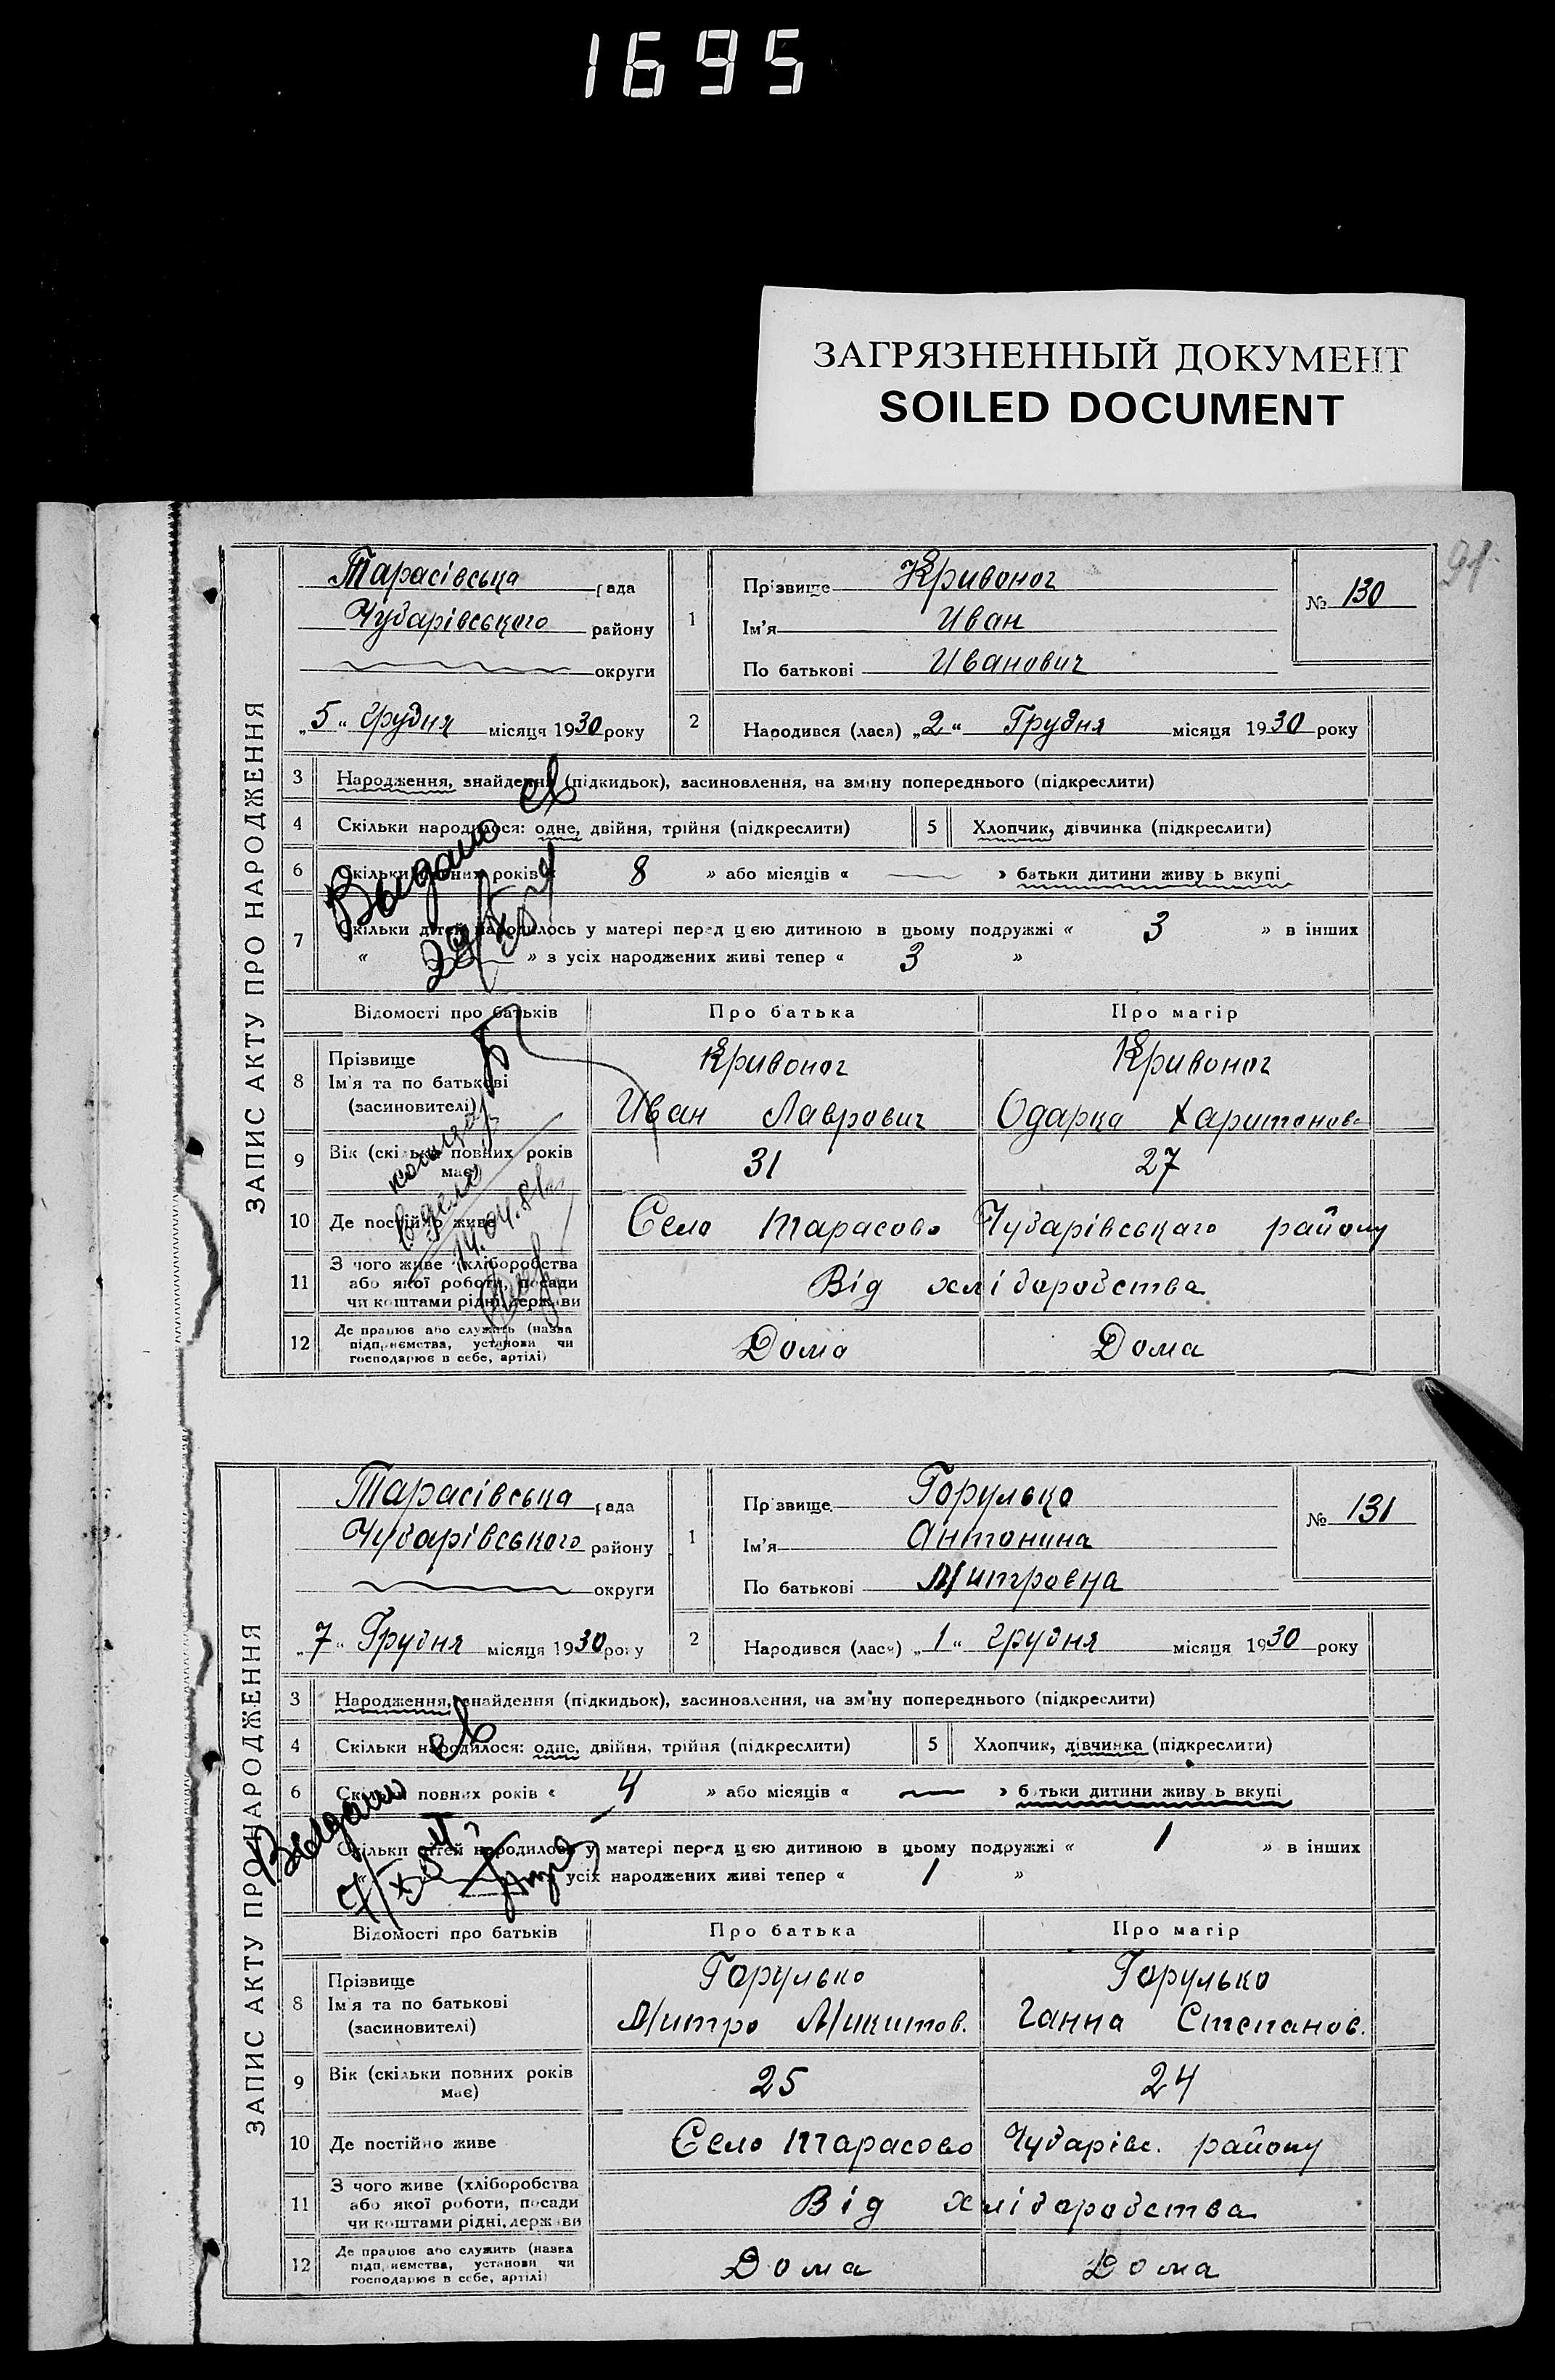 1695
ЗАГРЯЗНЕННЫЙ ДОКУМЕНТ
SOILED DOCUMENT
91.
ЗАПИС АКТУ ПРО НАРОДЖЕННЯ
Тарасівська рада
Чубарівського району
округи
„5“ грудня місяця 1930 року
1 Прізвище Кривоног
Ім'я Иван
По батькові Иванович
№ 130
2 Народився (лася) „2“ Грудня місяця 1930 року
3 Народження, знайдення (підкидьок), засиновлення, на зміну попереднього (підкреслити)
4 Скільки народилося: одне, двійня, трійня (підкреслити) 5 Хлопчик, дівчинка (підкреслити)
6 Скільки повних років « 8 » або місяців « — » батьки дитини живуть вкупі
7 Скільки дітей народилось у матері перед цією дитиною в цьому подружжі « 3 » в інших
« — » з усіх народжених живі тепер « 3 »
Выдано
Відомості про батьків Про батька Про матір
8 Прізвище Кривоног Кривоног
Ім'я та по батькові Иван Лаврович Одарка Харитонов
(засиновителі)
9 Вік (скільки повних років має) 31 27
14.04.81
10 Де постійно живе Село Тарасово Чубарівського району
11 З чого живе (хліборобства
або якої роботи, посади Від хліборобства
чи коштами рідні, держави
12 Де працює або служить (назва
підприємства, установи чи Дома Дома
господарює в себе, артілі)
ЗАПИС АКТУ ПРО НАРОДЖЕННЯ
Тарасівська рада
Чубарівського району
округи
„7“ Грудня місяця 1930 року
1 Прізвище Горулько
Ім'я Антонина
По батькові Митровна
№ 131
2 Народився (лася) „1“ грудня місяця 1930 року
3 Народження, знайдення (підкидьок), засиновлення, на зміну попереднього (підкреслити)
4 Скільки народилося: одне, двійня, трійня (підкреслити) 5 Хлопчик, дівчинка (підкреслити)
6 Скільки повних років « 4 » або місяців « — » батьки дитини живуть вкупі
Скільки дітей народилось у матері перед цією дитиною в цьому подружжі « 1 » в інших
усіх народжених живі тепер « 1 »
Выдано
Відомості про батьків Про батька Про матір
8 Прізвище Горулько Горулько
Ім'я та по батькові Митро Микитов. Ганна Степанов.
(засиновителі)
9 Вік (скільки повних років має) 25 24
10 Де постійно живе Село Тарасово Чубарівс. району
11 З чого живе (хліборобства
або якої роботи, посади Від хліборобства
чи коштами рідні, держави
12 Де працює або служить (назва
підприємства, установи чи Дома Дома
господарює в себе, артілі)